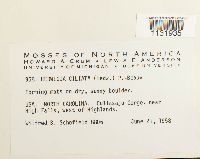 1131935
MOSSES OF NORTH AMERICA
HOWARD A. CRUM • LEWIS E. ANDERSON
UNIVERSITY OF MICHIGAN • DUKE UNIVERSITY
CILIATA (Hedw.) P.-Beauv.
Forming mats on dry, sunny boulder.
USA. NORTH CAROLINA. Cullasaja Gorge, near
High Falls, west of Highlands.
Wilfred B. Schofield
June 21, 1958